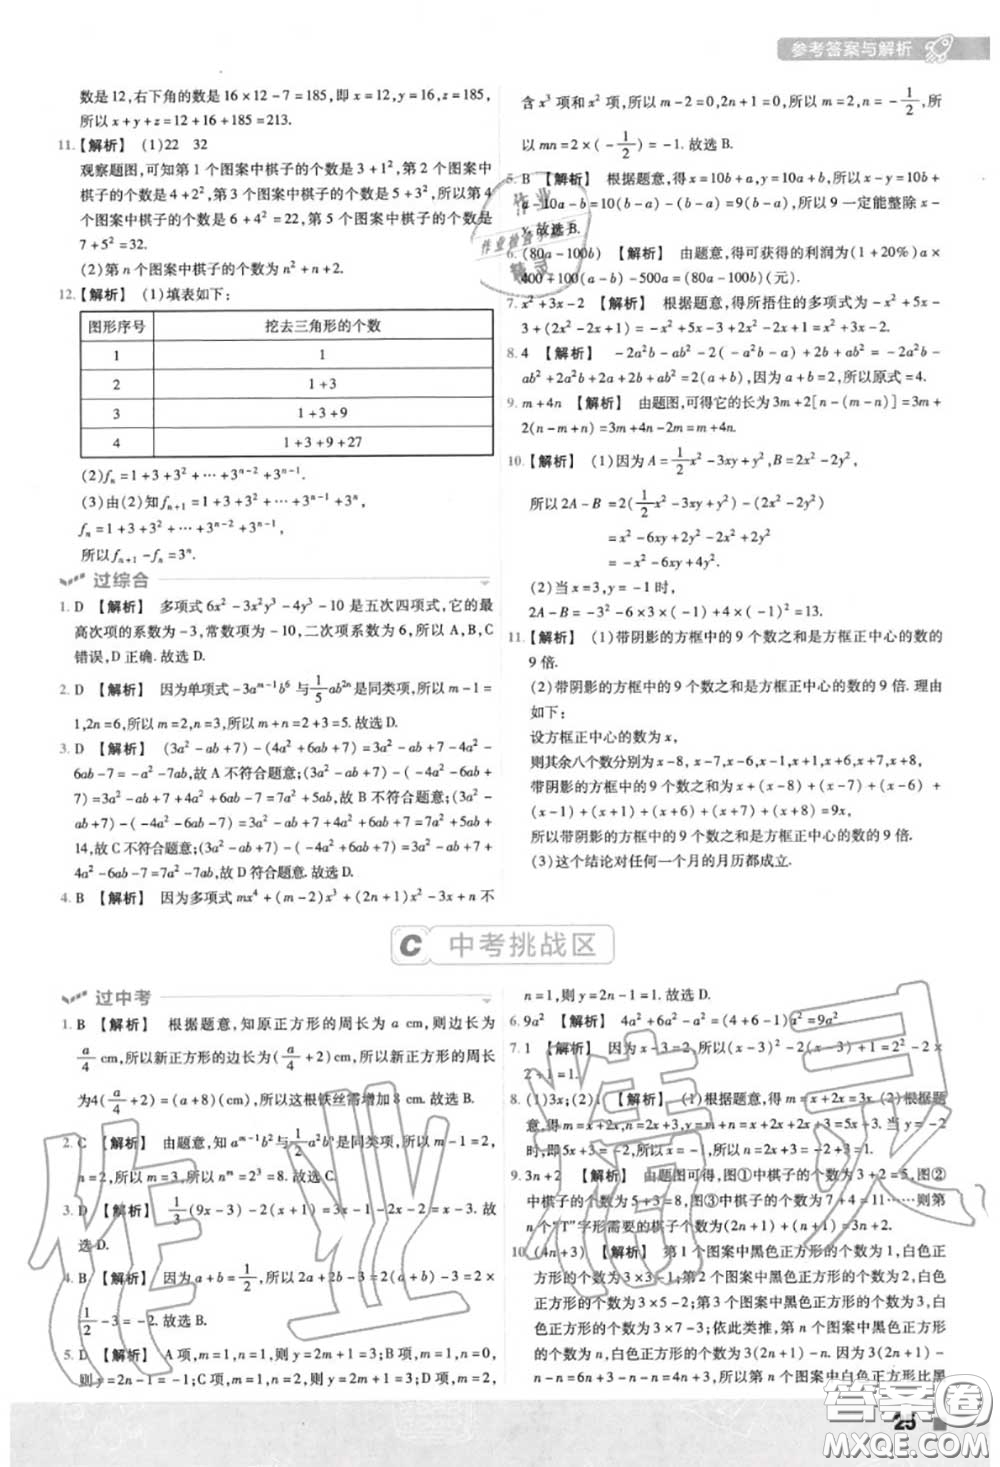 参考答案与解析
数是12,右下角的数是16×12-7=185,即x=12,y=16,z=185,
所以x+y+z=12+16+185=213.
11.【解析】 (1)22 32
观察题图,可知第1个图案中棋子的个数是3+1²,第2个图案
中棋子的个数是4+2²,第3个图案中棋子的个数是5+3²,所以第4
个图案中棋子的个数是6+4²=22,第5个图案中棋子的个数是
7+5²=32.
(2)第n个图案中棋子的个数为n²+n+2.
12.【解析】 (1)填表如下:
图形序号 挖去三角形的个数
1 1
2 1+3
3 1+3+9
4 1+3+9+27
(2)fₙ=1+3+3²+…+3ⁿ⁻²+3ⁿ⁻¹.
(3)由(2)知fₙ₊₁=1+3+3²+…+3ⁿ⁻¹+3ⁿ,
fₙ=1+3+3²+…+3ⁿ⁻²+3ⁿ⁻¹,
所以fₙ₊₁-fₙ=3ⁿ.
过综合
1. D 【解析】 多项式6x²-3x²y³-4y³-10是五次四项式,它的最
高次项的系数为-3,常数项为-10,二次项系数为6,所以A,B,C
错误,D正确.故选D.
2. D 【解析】 因为单项式-3aᵐ⁻¹b⁶与1/5ab²ⁿ是同类项,所以m-1=
1,2n=6,所以m=2,n=3,所以m+n=2+3=5.故选D.
3. D 【解析】 (3a²-ab+7)-(4a²+6ab+7)=3a²-ab+7-4a²-
6ab-7=-a²-7ab,故A不符合题意;(3a²-ab+7)-(-4a²-6ab-7)=
3a²-ab+7+4a²+6ab+7=7a²+5ab+14,故B不符合题意;(3a²-
ab+7)-(-4a²-6ab-7)=3a²-ab+7+4a²+6ab+7=7a²+5ab+
14,故C不符合题意;(3a²-ab+7)-(-4a²+6ab+7)=3a²-ab+
7+4a²-6ab-7=7a²-7ab,故D符合题意.故选D.
4. B 【解析】 因为多项式mx⁴+(m-2)x³+(2n+1)x²-3x+n不
含x³项和x²项,所以m-2=0,2n+1=0,所以m=2,n=-1/2,所
以mn=2×(-1/2)=-1.故选B.
5. B 【解析】 根据题意,得x=10b+a,y=10a+b,所以x-y=10b
+a-10a-b=10(b-a)-(b-a)=9(b-a),所以9一定能整除x-
y.故选B.
6. (80a-100b) 【解析】 由题意,得可获得的利润为(1+20%)a×
400+100(a-b)-500a=(80a-100b)(元).
7. x²+3x-2 【解析】 根据题意,得所捂住的多项式为-x²+5x-
3+(2x²-2x+1)=-x²+5x-3+2x²-2x+1=x²+3x-2.
8. 4 【解析】 -2a²b-ab²-2(-a²b-ab²-b-a)+2b+ab²=-2a²b-
ab²+2a²b+2ab²+2b+2a+2b-ab²=2(a+b),因为a+b=2,所以原式=4.
9. m+4n 【解析】 由题图,可得它的长为3m+2[n-(m-n)]=3m+
2(n-m+n)=3m+4n-2m=m+4n.
10.【解析】 (1)因为A=1/2x²-3xy+y²,B=2x²-2y²,
所以2A-B=2(1/2x²-3xy+y²)-(2x²-2y²)
=x²-6xy+2y²-2x²+2y²
=-x²-6xy+4y².
(2)当x=3,y=-1时,
2A-B=-3²-6×3×(-1)+4×(-1)²=13.
11.【解析】 (1)带阴影的方框中的9个数之和是方框正中心的数的
9倍.
(2)带阴影的方框中的9个数之和是方框正中心的数的9倍.理由
如下:
设方框正中心的数为x,
则其余八个数分别为x-8,x-7,x-6,x-1,x+1,x+6,x+7,x+8,
带阴影的方框中的9个数之和为x+(x-8)+(x-7)+(x-6)+
(x-1)+(x+1)+(x+6)+(x+7)+(x+8)=9x,
所以带阴影的方框中的9个数之和是方框正中心的数的9倍.
(3)这个结论对任何一个月的月历都成立.
C 中考挑战区
过中考
1. B 【解析】 根据题意,知原正方形的周长为a cm,则边长为
a/4 cm,所以新正方形的边长为(a/4+2)cm,所以新正方形的周长
为4(a/4+2)=(a+8)(cm),所以这根铁丝需增加8 cm.故选B.
2. C 【解析】 由题意,知aᵐ⁻¹b²与1/2a²bⁿ是同类项,所以m-1=2,
n=2,所以m=3,n=2,所以nᵐ=2³=8.故选C.
3. D 【解析】 1/3(9x-3)-2(x+1)=3x-1-2x-2=x-3.故
选D.
4. B 【解析】 因为a+b=1/2,所以2a+2b-3=2(a+b)-3=2×
1/2-3=-2.故选B.
5. D 【解析】 A项,m=1,n=1,则y=2m+1=3;B项,m=1,n=0,
则y=2n-1=-1;C项,m=1,n=2,则y=2m+1=3;D项,m=2,
n=1,则y=2n-1=1.故选D.
6. 9a² 【解析】 4a²+6a²-a²=(4+6-1)a²=9a²
7. 1 【解析】 因为x-3=2,所以(x-3)²-2(x-3)+1=2²-2×
2+1=1.
8. (1)3x;(2)1 【解析】 (1)根据题意,得m=x+2x=3x.(2)根据题
意,得m=x+2x=3x,n=2x+3,y=m+n,所以y=3x+2x+3=5x+3,当y=-2
时,即5x+3=-2,所以x=-1,所以n=2x+3=-2+3=1.
9. 3n+2 【解析】 由题图可得,图①中棋子的个数为3+2=5,图②
中棋子的个数为5+3=8,图③中棋子的个数为7+4=11……则第
n个“T”字形需要的棋子个数为(2n+1)+(n+1)=3n+2.
10. (4n+3) 【解析】 第1个图案中黑色正方形的个数为1,白色正
方形的个数为3×3-1;第2个图案中黑色正方形的个数为2,白色
正方形的个数为3×5-2;第3个图案中黑色正方形的个数为3,白
色正方形的个数为3×7-3;依此类推,第n个图案中黑色正方形的
个数为n,白色正方形的个数为3(2n+1)-n,所以白色正方形比黑
25
作业精灵
答案圈
MXQE.COM